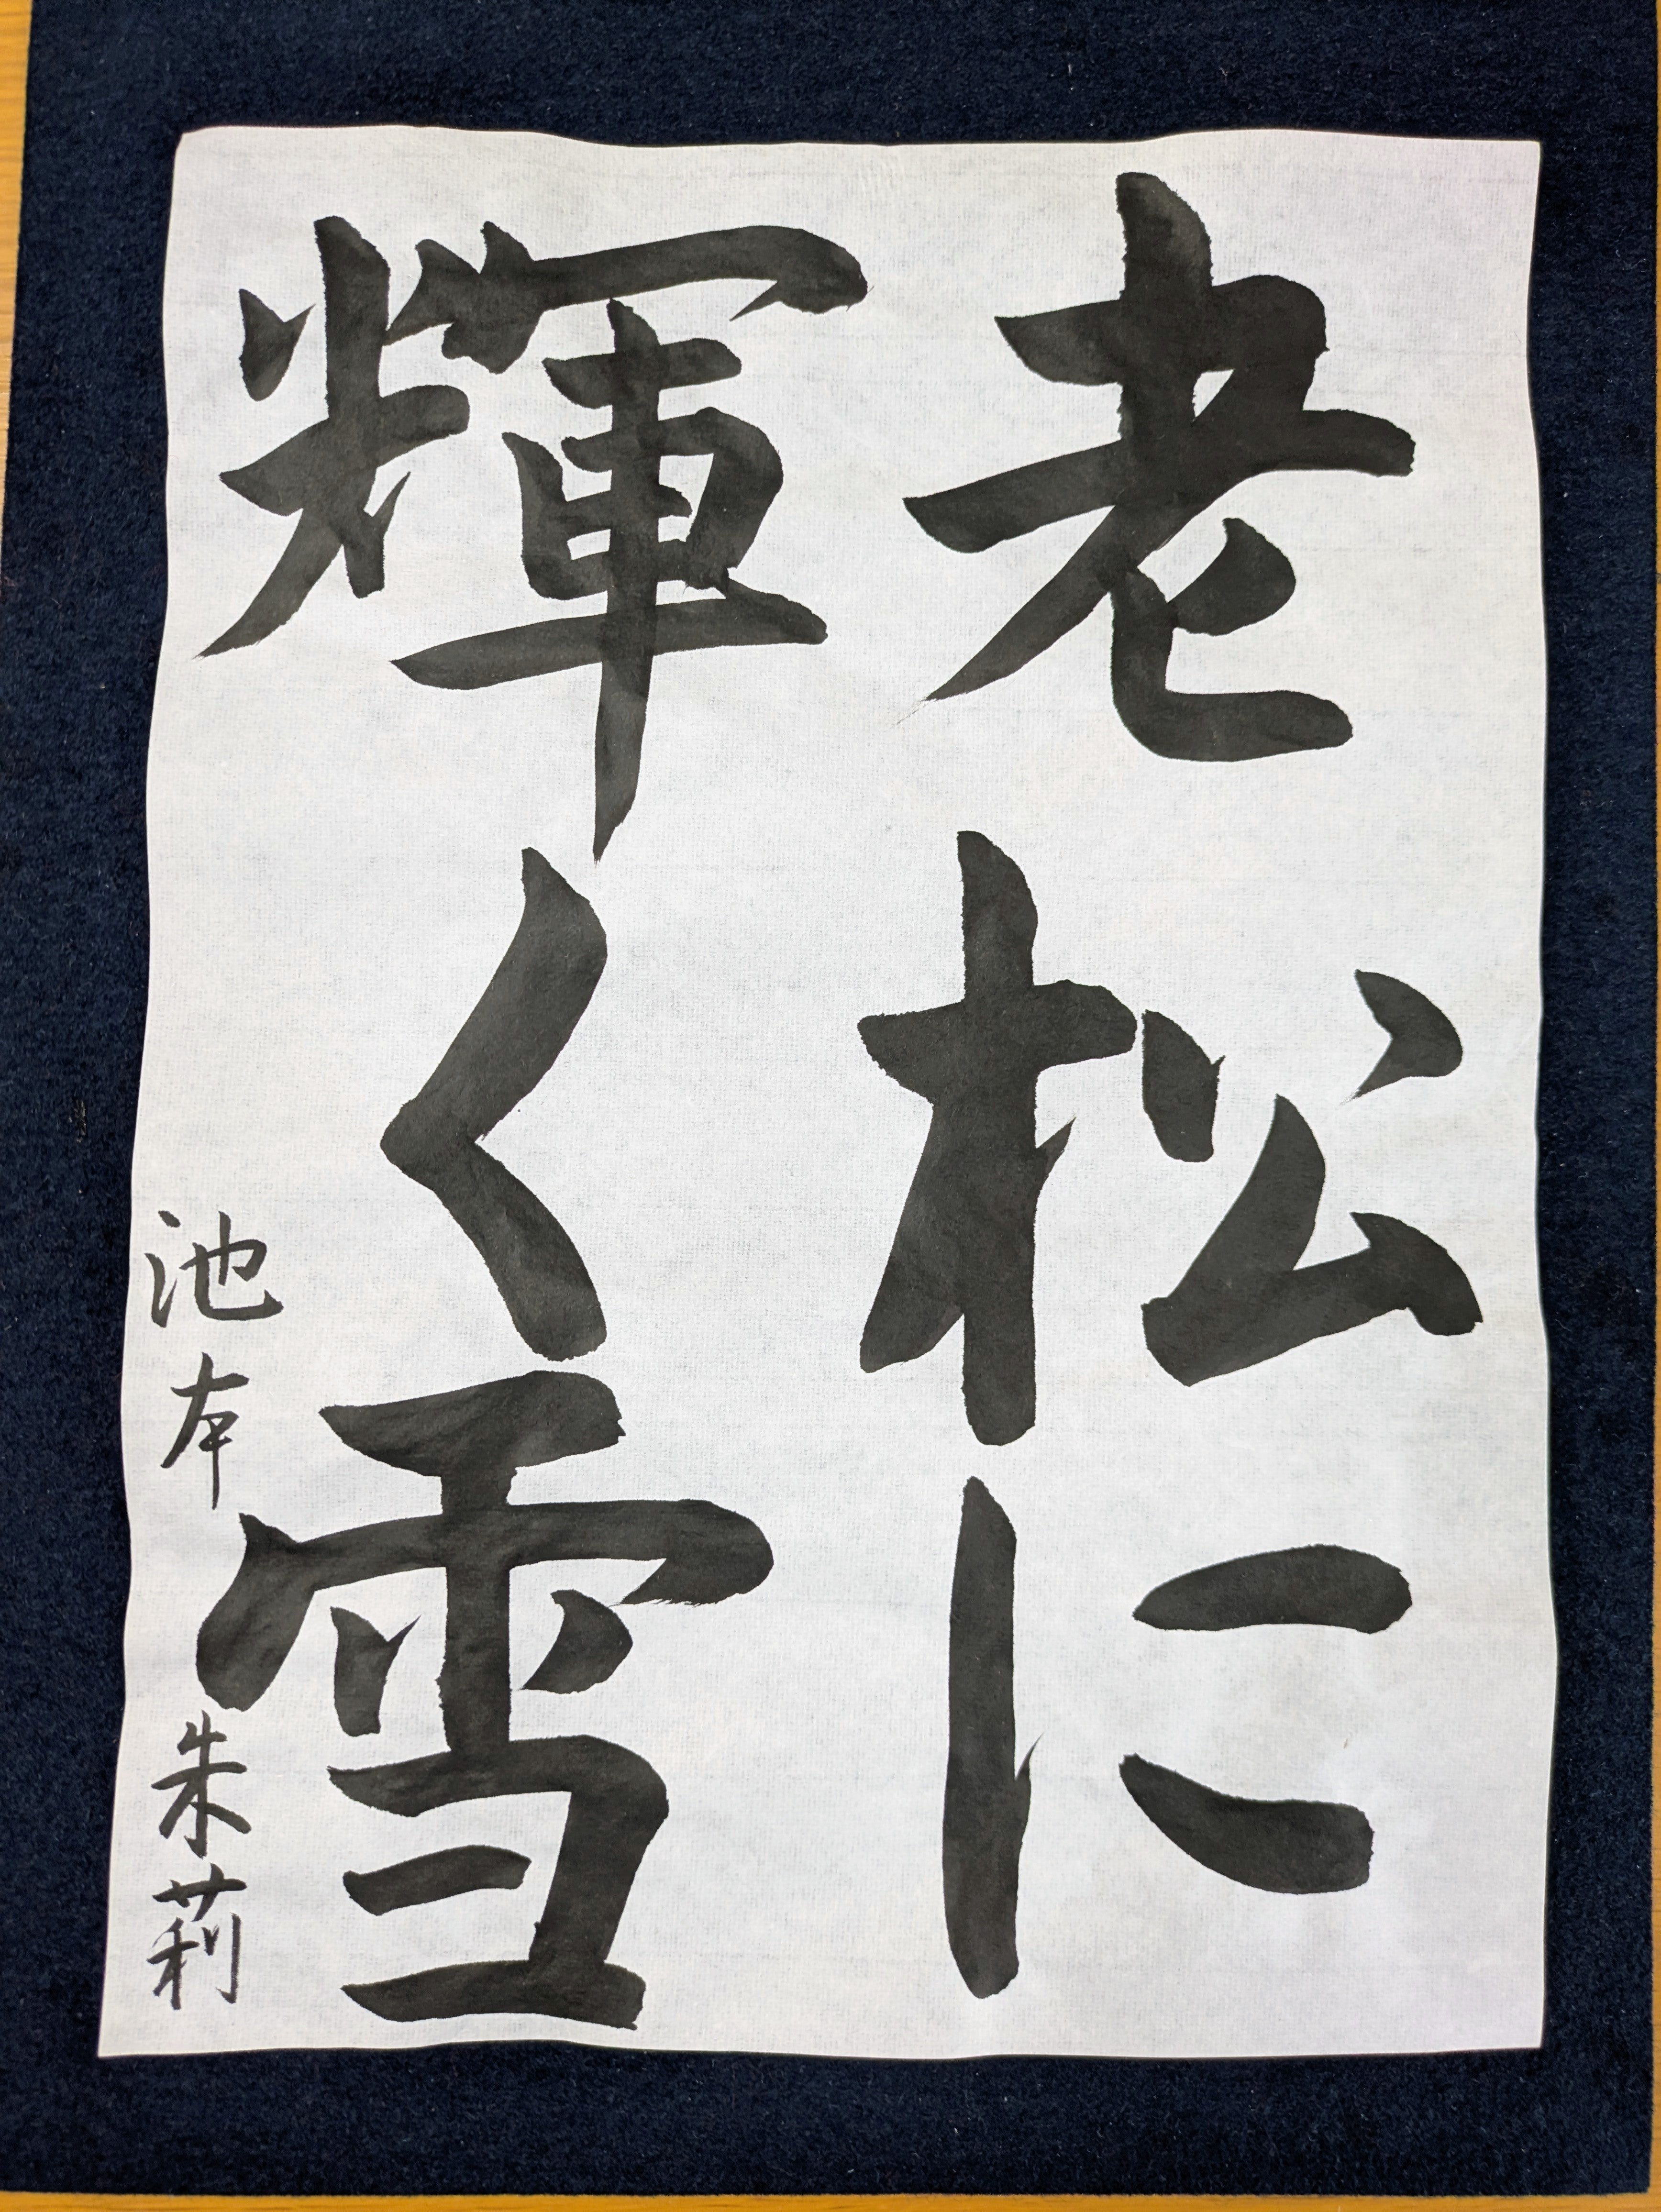 老松に
輝く雪
池本朱莉